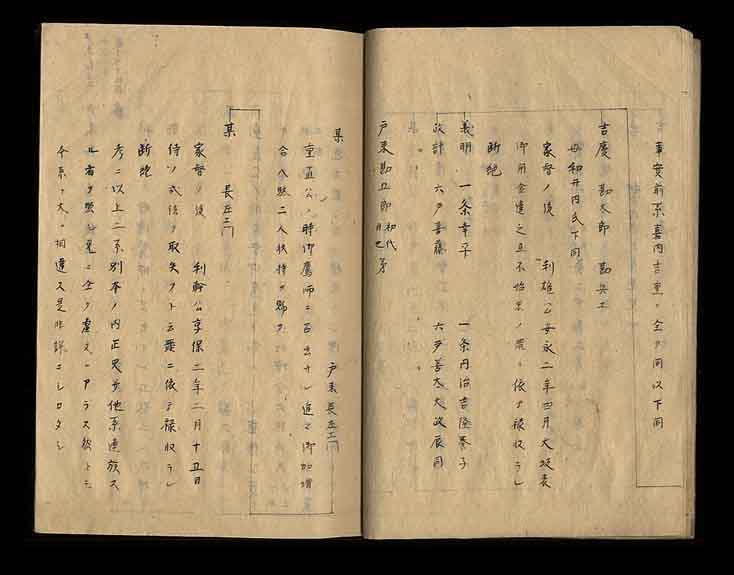 吉車実前系喜内吉重ノ全ク同以下同
吉慶 勘太郎 勘兵エ
母和井内氏下同
家督ノ後 利雄公安永二年四月大坂表
御用金達之且不怡ノ罪ニ依テ禄収ラレ
断絶
義明 一条幸平 一条丹治吉隆養子
政詳 六戸善藤 六戸善太夫政辰同
戸来勘五郎初代
某 戸来長左エ門
重直公ノ時御鷹師ニ召出サレ追々御加増
合八駄二人扶持ヲ賜フ
某 長左エ門
家督ノ後 利幹公享保二年二月十五日
侍ノ式法ヲ取失フト云罪ニ依テ禄収ラレ
断絶
考ニ以上二系別本ノ内正史並他系連族ス
ル者ヲ照シ見ニ全ク虚文ニアラス然トモ
本系ト大ニ相違ス是非詳ニシロタシ